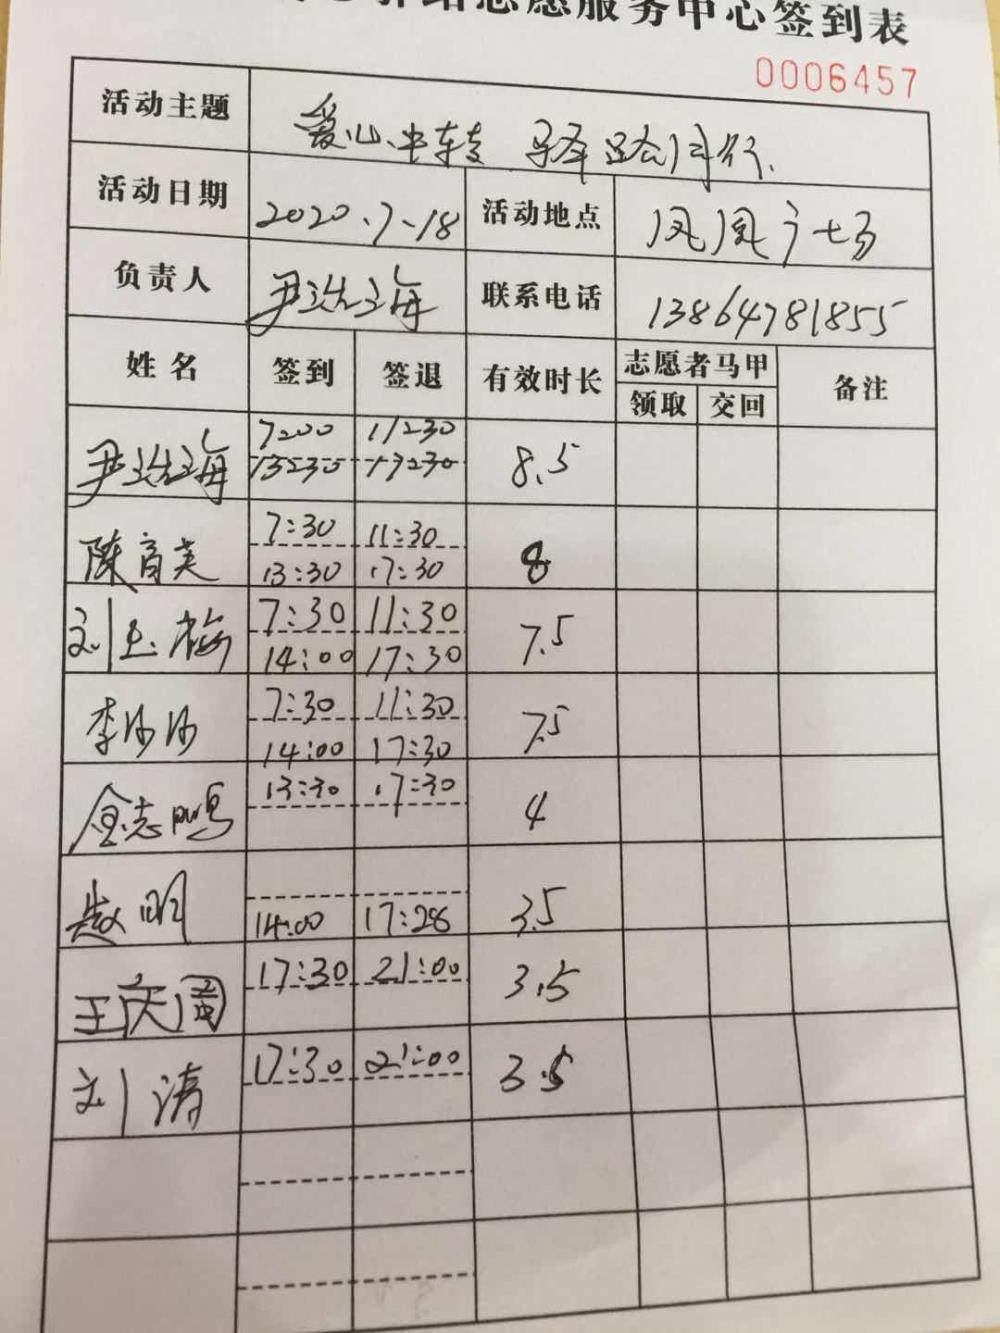 志愿服务中心签到表
0006457
活动主题 爱心中转 驿路同行.
活动日期 2020.7-18 活动地点 凤凰广场
负责人 尹洪海 联系电话 13864781855
姓名 签到 签退 有效时长 志愿者马甲 备注
领取 交回
尹洪海 7:00 11:30 8.5
13:30 17:30
陈育英 7:30 11:30 8
13:30 17:30
刘玉梅 7:30 11:30 7.5
14:00 17:30
李沙沙 7:30 11:30 7.5
14:00 17:30
金志鹏 13:30 17:30 4
赵明 14:00 17:28 3.5
王庆国 17:30 21:00 3.5
刘涛 17:30 21:00 3.5